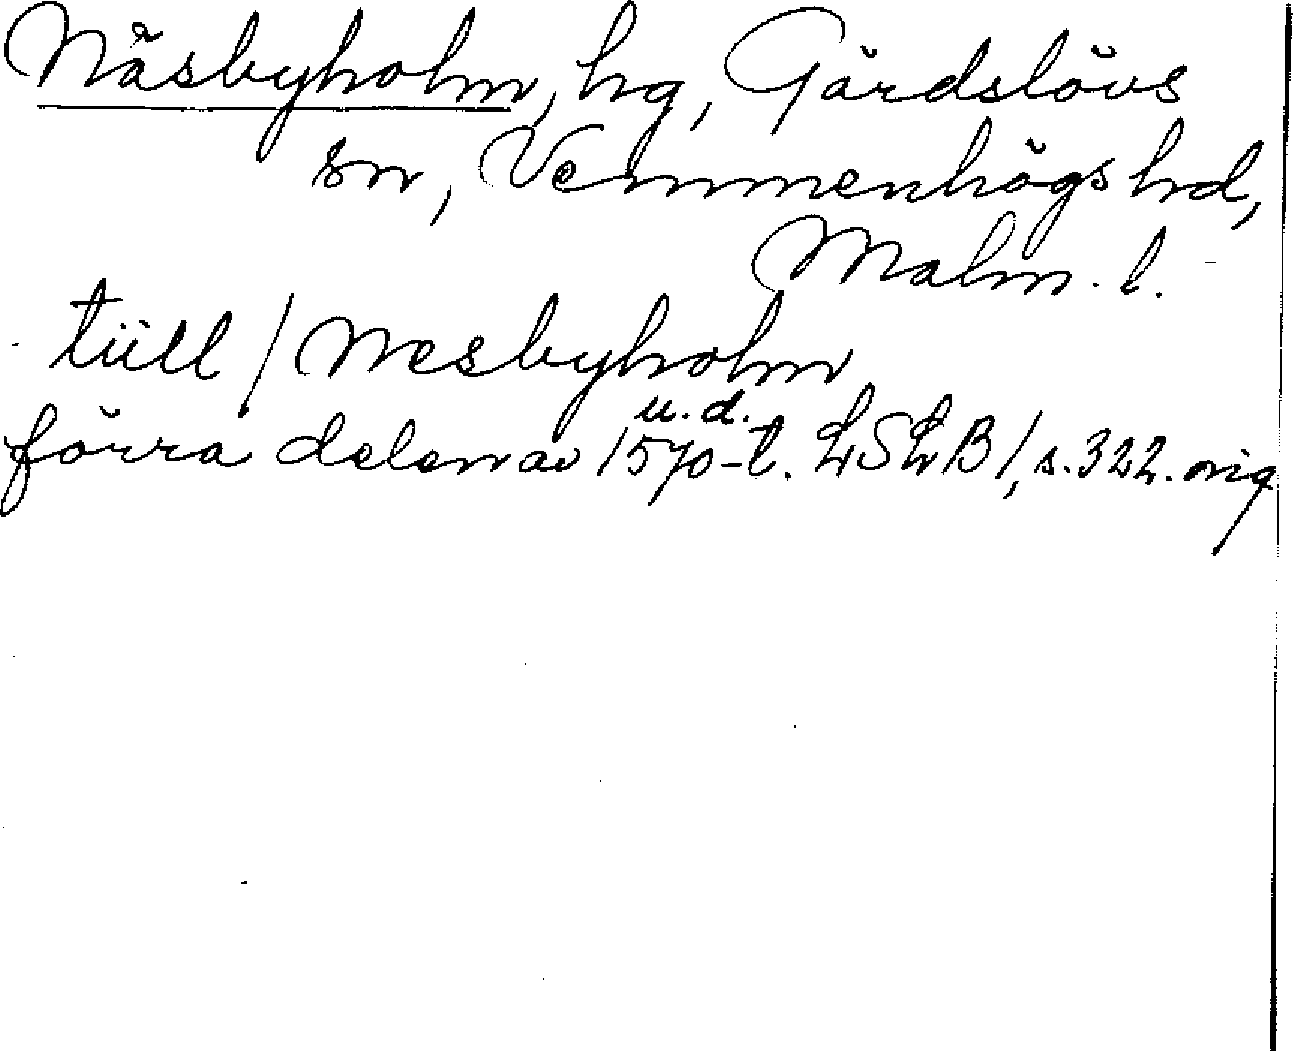 Näsbyholm, hg, Gärdslövs
sn, Vemmenhögs hd,
Malm. l.
tiill / Nesbyholm
u. d.
förra delen av 1570-t. LSLB1, s. 322. orig.